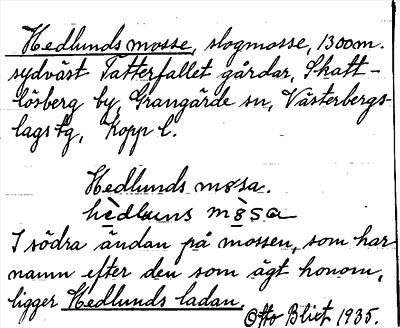 Hedlunds mosse, slogmosse, 1300m.
sydväst Tatterfallet gårdar, Skatt-
lösberg by, Grangärde sn, Västerbergs-
lags tg, Kopp l.
Hedlunds møsa.
hèdluns mø̀sa
I södra ändan på mossen, som har
namn efter den som ägt honom,
ligger Hedlunds ladan.
Otto Blixt 1935.